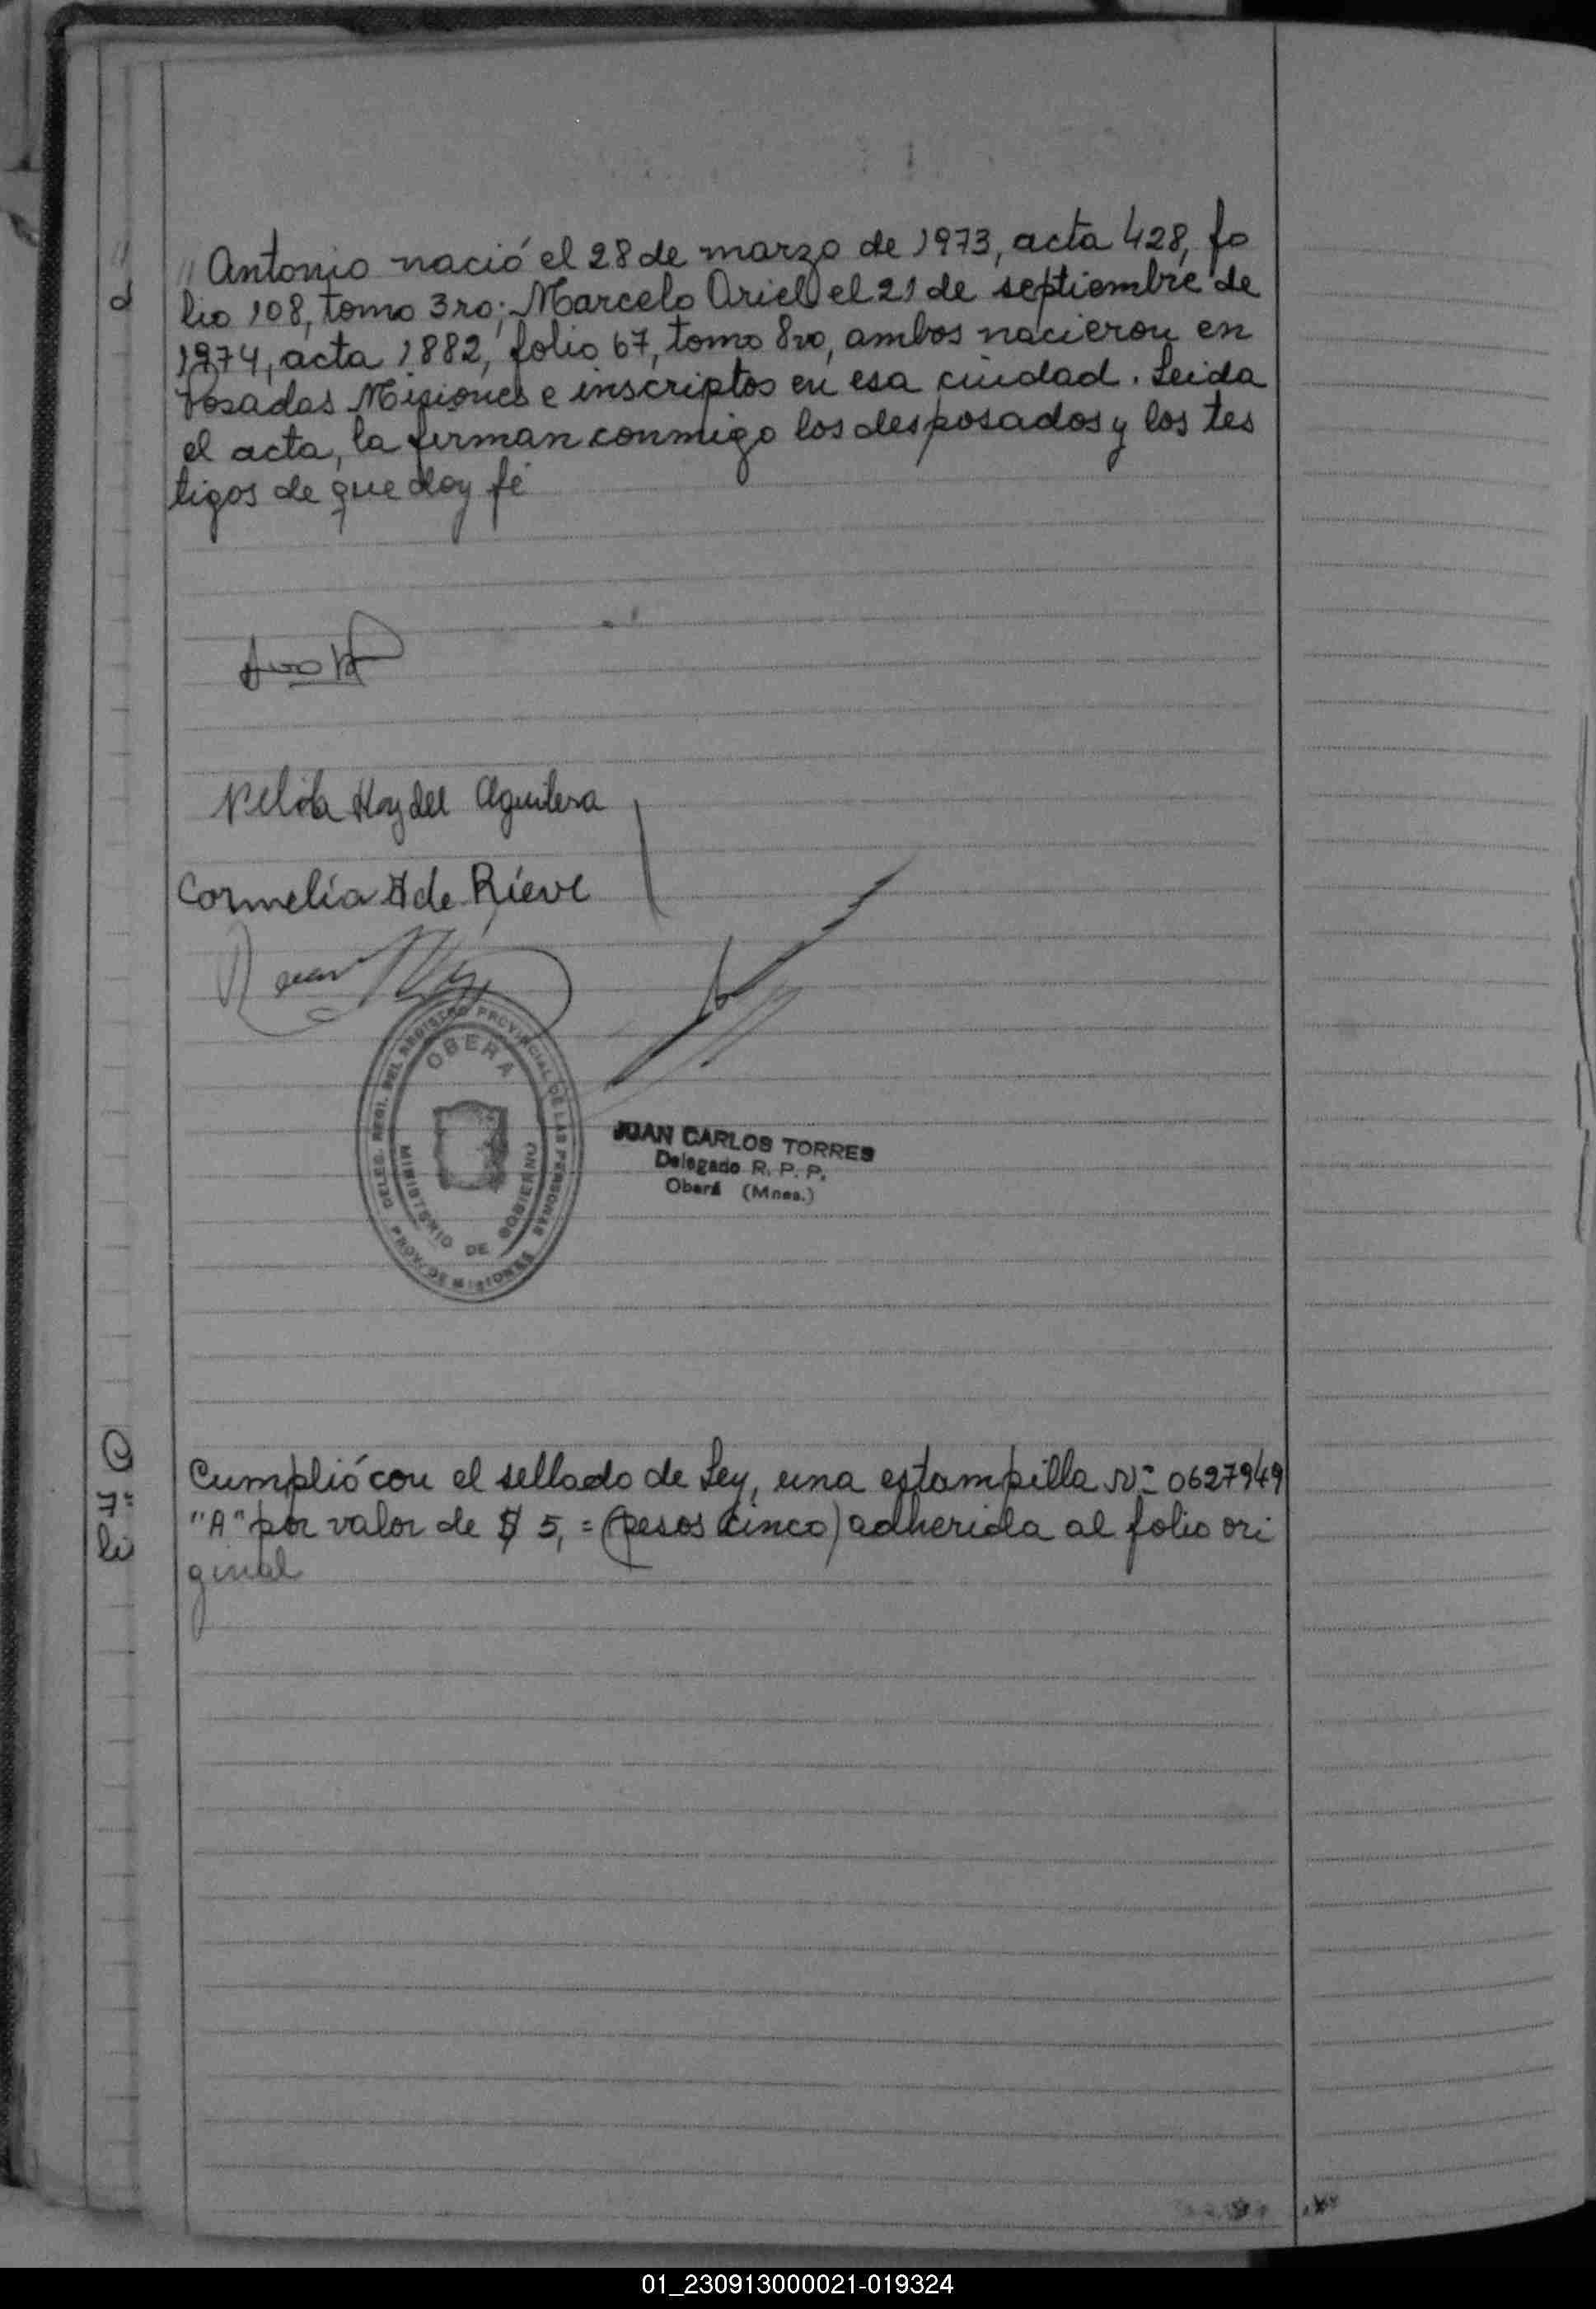 " Antonio nació el 28 de marzo de 1973, acta 428, fo
lio 108, tomo 3ro; Marcelo Ariel el 21 de septiembre de
1974, acta 1882, folio 67, tomo 8vo, ambos nacieron en
Posadas Misiones e inscriptos en esa ciudad. Leida
el acta, la firman conmigo los desposados y los tes
tigos de que doy fé
Aguilera
Cornelia A de Rieve
DELEG. REGI. DEL REGISTRO PROVINCIAL DE LAS PERSONAS
OBERA
MINISTERIO DE GOBIERNO
PROV. DE MISIONES
JUAN CARLOS TORRES
Delegado R. P. P.
Oberá (Mnes.)
Cumplió con el sellado de Ley, una estampilla Nº 0627949
"A" por valor de $ 5,= (pesos cinco) adherida al folio ori
ginal
01_230913000021-019324